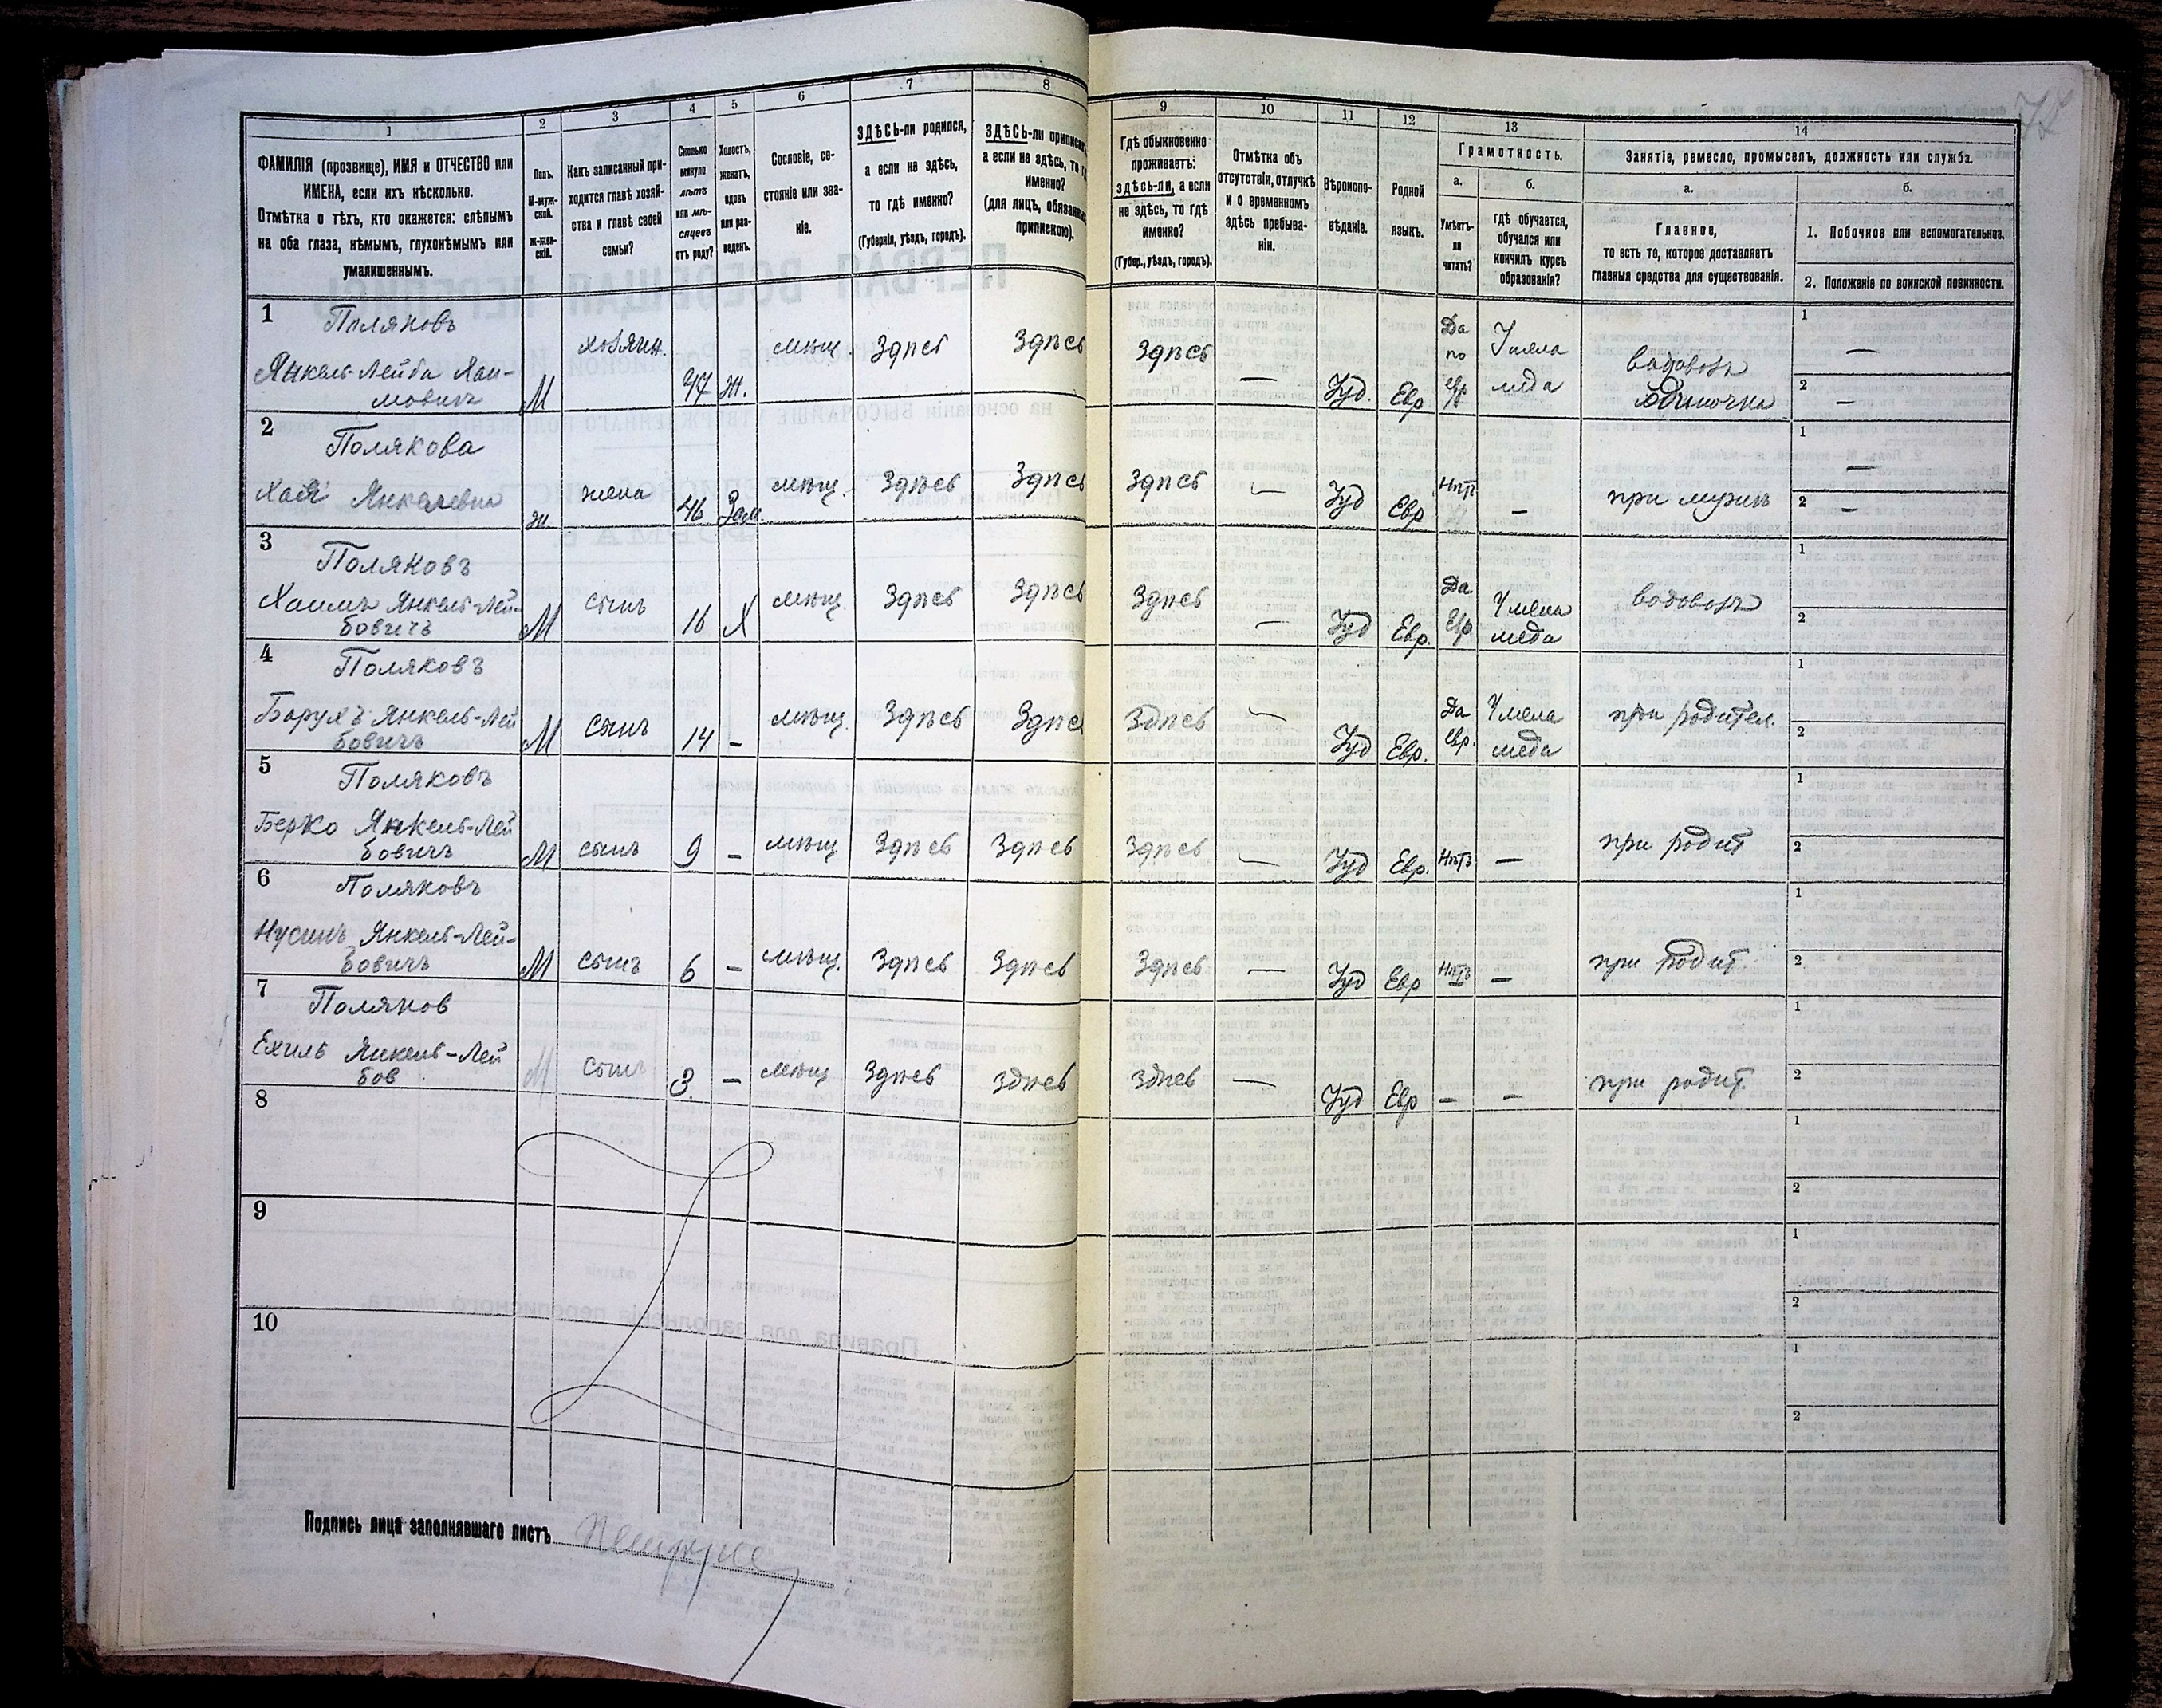 1
2
3
4
5
6
7
8
9
10
11
12
13
14
ФАМИЛІЯ (прозвище), ИМЯ и ОТЧЕСТВО или
ИМЕНА, если ихъ нѣсколько.
Отмѣтка о тѣхъ, кто окажется: слѣпымъ
на оба глаза, нѣмымъ, глухонѣмымъ или
умалишеннымъ.
Полъ.
М-муж-
ской.
Ж-жен-
скій.
Какъ записанный при-
ходится главѣ хозяй-
ства и главѣ своей
семьи?
Сколько
минуло
лѣтъ
или мѣ-
сяцевъ
отъ роду?
Холостъ,
женатъ,
вдовъ
или раз-
веденъ.
Сословіе, со-
стояніе или зва-
ніе.
ЗДѢСЬ-ли родился,
а если не здѣсь,
то гдѣ именно?
(Губернія, уѣздъ, городъ).
ЗДѢСЬ-ли приписанъ
а если не здѣсь, то
именно?
(для лицъ,
припискою).
Гдѣ обыкновенно
проживаетъ:
здѣсь-ли, а если
не здѣсь, то гдѣ
именно?
(Губер., уѣздъ, городъ).
Отмѣтка объ
отсутствіи, отлучкѣ
и о временномъ
здѣсь пребыва-
ніи.
Вѣроиспо-
вѣданіе.
Родной
языкъ.
Грамотность.
а.
Умѣетъ-
ли
читать?
б.
гдѣ обучается,
обучался или
кончилъ курсъ
образованія?
Занятіе, ремесло, промыселъ, должность или служба.
а.
Главное,
то есть то, которое доставляетъ
главныя средства для существованія.
б.
1. Побочное или вспомогательное.
2. Положеніе по воинской повинности.
1
Поляковъ
Янкель-Лейба Хаи-
мовичъ
М
хозяин.
47
Ж.
мѣщ.
Здѣсь
Здѣсь
Здѣсь
—
Іуд.
Евр
Да
по
евр
У мела
меда
водовозъ
одиночка
1 —
2 —
2
Полякова
Хая Янкелевна
ж
жена
46
Зам.
мѣщ.
Здѣсь
Здѣсь
Здѣсь
—
Іуд
Евр
Нѣтъ
—
при мужѣ
1 —
2 —
3
Поляковъ
Хаимъ Янкель-Лей-
бовичъ
М
сынъ
16
Х
мѣщ.
Здѣсь
Здѣсь
Здѣсь
—
Іуд
Евр.
Да
Евр
У мела
меда
водовозъ
1
2
4
Поляковъ
Борухъ Янкель-Лей
бовичъ
М
сынъ
14
—
мѣщ.
Здѣсь
Здѣсь
Здѣсь
—
Іуд
Евр.
Да
евр.
У мела
меда
при родител.
1
2
5
Поляковъ
Берко Янкель-Лей
бовичъ
М
сынъ
9
—
мѣщ
Здѣсь
Здѣсь
Здѣсь
—
Іуд
Евр.
Нѣтъ
—
при родит
1
2
6
Поляковъ
Нусинъ Янкель-Лей-
бовичъ
М
сынъ
6
—
мѣщ.
Здѣсь
Здѣсь
Здѣсь
—
Іуд
Евр
Нѣтъ
—
при родит.
1
2
7
Поляков
Ехиль Янкель-Лей
бов
М
сынъ
3.
—
мѣщ
Здѣсь
здѣсь
здѣсь
—
Іуд
Евр
—
—
при родит.
1
2
8
1
2
9
1
2
10
1
2
Подпись лица заполнявшаго листъ